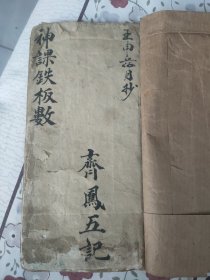 壬申月抄
齊鳳五記
神課鉄板數